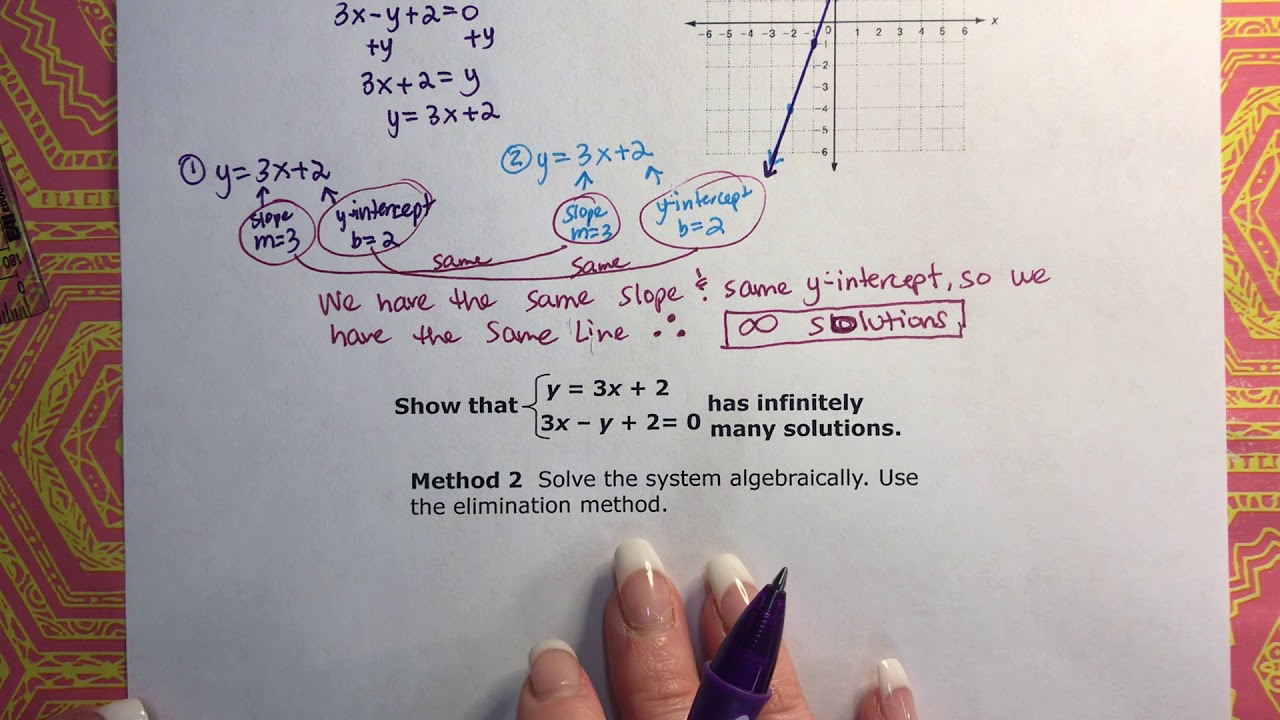 3x-y+2=0
+y +y
3x+2=y
y=3x+2
x
-6 -5 -4 -3 -2 -1 0 1 2 3 4 5 6
-2
-4
-5
-6
① y=3x+2
② y=3x+2
slope m=3
y-intercept b=2
slope m=3
y-intercept b=2
same same
We have the same slope & same y-intercept, so we
have the same Line ∴ ∞ solutions
Show that { y = 3x + 2
3x − y + 2= 0 has infinitely
many solutions.
Method 2 Solve the system algebraically. Use
the elimination method.
180
0